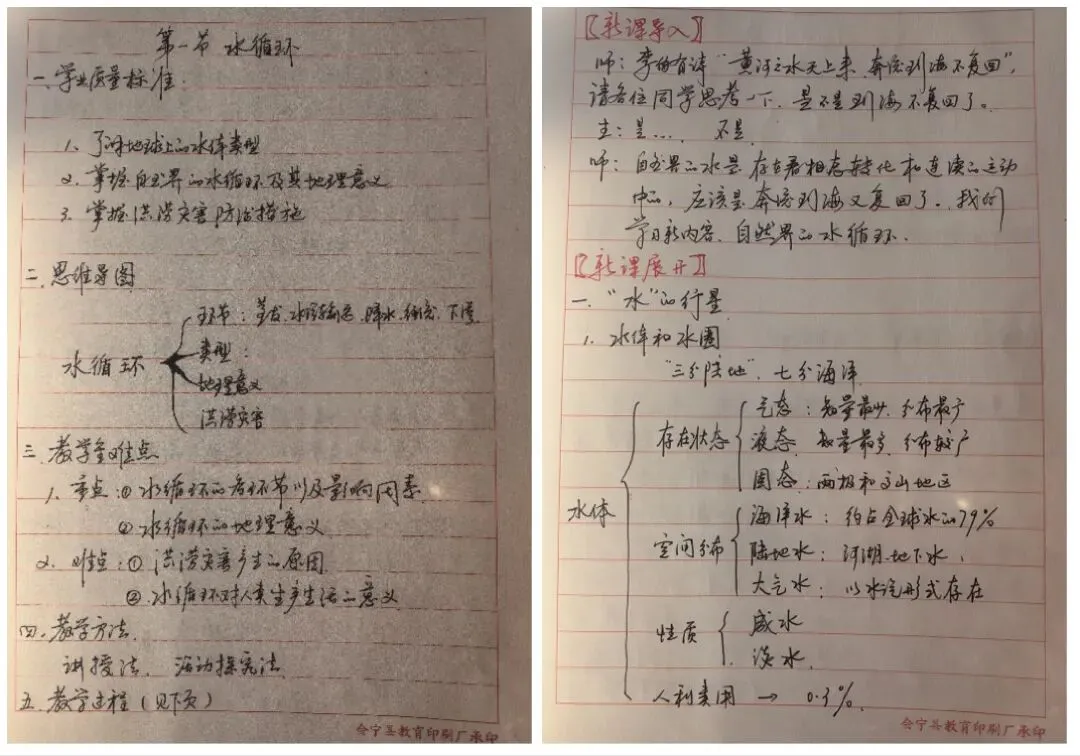 第一节 水循环
一.学业质量标准:
1、了解地球上的水体类型
2、掌握自然界的水循环及其地理意义
3、掌握洪涝灾害防治措施
二.思维导图
水循环
环节:蒸发、水汽输送、降水、径流、下渗
类型:
地理意义
洪涝灾害
三.教学重难点
1、重点:①水循环的各环节以及影响因素
②水循环的地理意义
2、难点:①洪涝灾害产生的原因
②水循环对人类生产生活的意义
四.教学方法
讲授法、活动探究法
五.教学过程(见下页)
会宁县教育印刷厂承印
【新课导入】
师:李白有诗“黄河之水天上来,奔流到海不复回”,
请各位同学思考一下,是不是到海不复回了。
生:是... 不是
师:自然界的水是存在着相态转化和连续的运动
中的,应该是奔流到海又复回了。我们
学习新内容,自然界的水循环.
【新课展开】
一.“水”的行星
1、水体和水圈
“三分陆地”、七分海洋
水体
存在状态
气态:数量最少,分布最广
液态:数量最多,分布较广
固态:两极和高山地区
空间分布
海洋水:约占全球水的79%
陆地水:河湖、地下水、
大气水:以水汽形式存在
性质
咸水
淡水.
人利类用 → 0.3%.
会宁县教育印刷厂承印